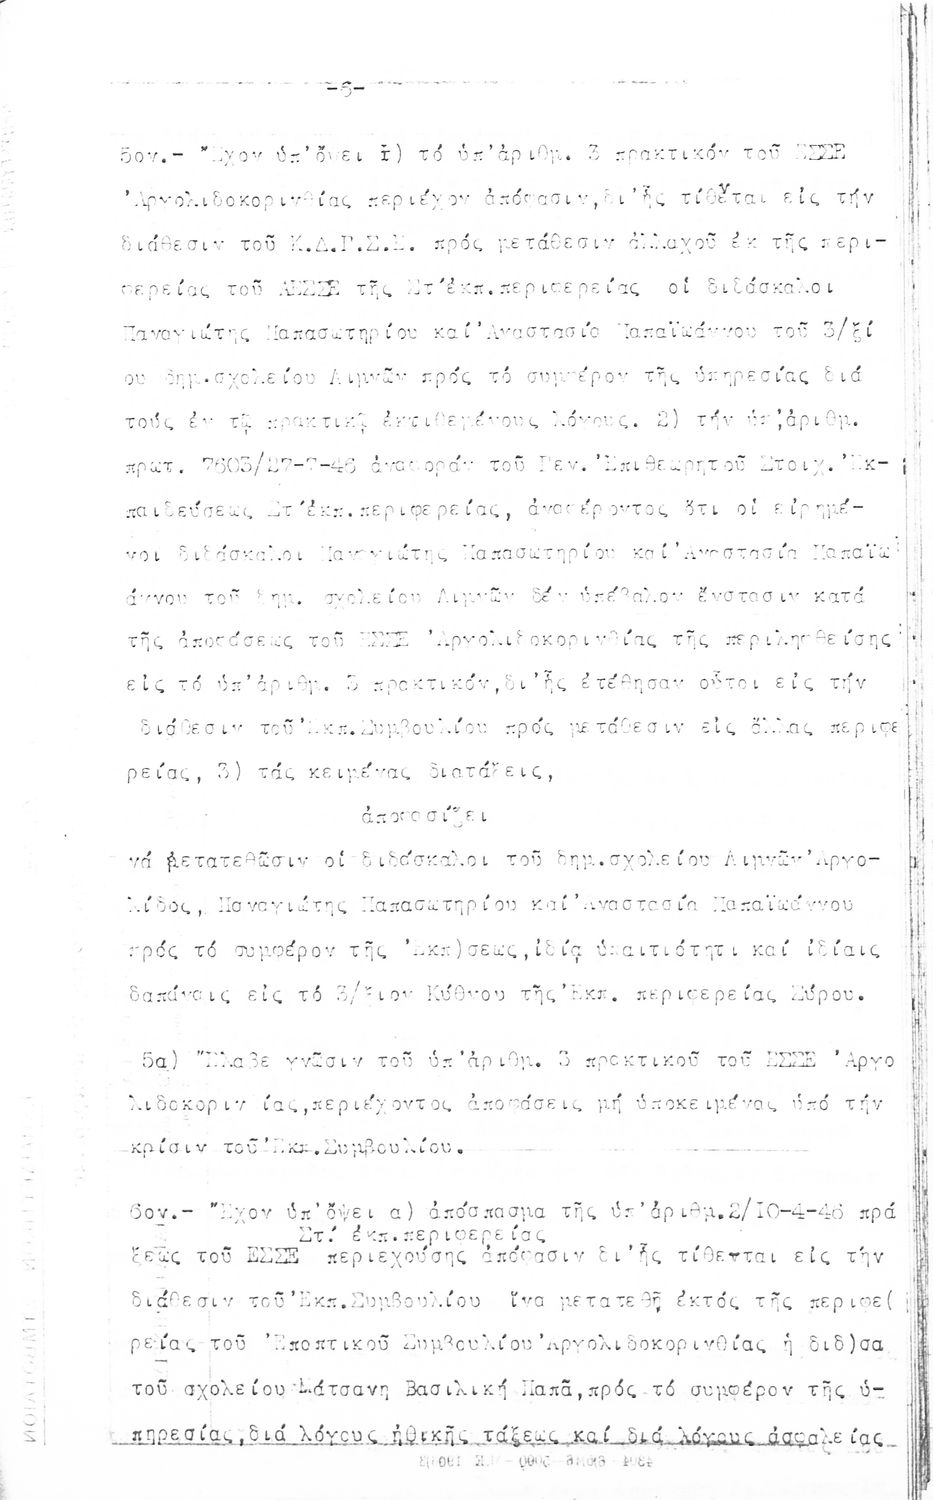 -6-
5ον.- "Εχον ὑπ'ὄψει Ι) τό ὑπ'ἀριθμ. 3 πρακτικόν τοῦ ΕΣΣΕ
'Αργολιδοκορινθίας περιέχον ἀπόφασιν,δι'ἧς τίθενται εἰς τήν
διάθεσιν τοῦ Κ.Δ.Γ.Σ.Ε. πρός μετάθεσιν ἀλλαχοῦ ἐκ τῆς περι-
φερείας τοῦ ΑΕΣΣΕ τῆς Στ'ἐκπ.περιφερείας οἱ διδάσκαλοι
Παναγιώτης Παπασωτηρίου καί'Αναστασία Παπαϊωάννου τοῦ 3/ξί
ου δημ.σχολείου Λιμνῶν πρός τό συμφέρον τῆς ὑπηρεσίας διά
τούς ἐν τῷ πρακτικῷ ἐκτιθεμένους λόγους. 2) τήν ὑπ'ἀριθμ.
πρωτ. 7603/27-7-46 ἀναφοράν τοῦ Γεν.'Επιθεωρητοῦ Στοιχ.'Εκ-
παιδεύσεως Στ'ἐκπ.περιφερείας, ἀναφέροντος ὅτι οἱ εἰρημέ-
νοι διδάσκαλοι Παναγιώτης Παπασωτηρίου καί'Αναστασία Παπαϊω
άννου τοῦ δημ. σχολείου Λιμνῶν δέν ὑπέβαλον ἔνστασιν κατά
τῆς ἀποφάσεως τοῦ ΕΣΣΕ 'Αργολιδοκορινθίας τῆς περιληφθείσης
εἰς τό ὑπ'ἀριθμ. 3 πρακτικόν,δι'ἧς ἐτέθησαν οὗτοι εἰς τήν
διάθεσιν τοῦ'Εκπ.Συμβουλίου πρός μετάθεσιν εἰς ἄλλας περιφε
ρείας, 3) τάς κειμένας διατάξεις,
ἀποφασίζει
νά μετατεθῶσιν οἱ διδάσκαλοι τοῦ δημ.σχολείου Λιμνῶν'Αργο-
λίδος, Παναγιώτης Παπασωτηρίου καί'Αναστασία Παπαϊωάννου
πρός τό συμφέρον τῆς 'Εκπ)σεως,ἰδίᾳ ὑπαιτιότητι καί ἰδίαις
δαπάναις εἰς τό 3/ξιον Κύθνου τῆς'Εκπ. περιφερείας Σύρου.
5α) "Ελαβε γνῶσιν τοῦ ὑπ'ἀριθμ. 3 πρακτικοῦ τοῦ ΕΣΣΕ 'Αργο
λιδοκοριν ίας,περιέχοντος ἀποφάσεις μή ὑποκειμένας ὑπό τήν
κρίσιν τοῦ'Εκπ.Συμβουλίου.
6ον.- "Εχον ὑπ'ὄψει α) ἀπόσπασμα τῆς ὑπ'ἀριθμ.2/ΙΟ-4-46 πρά
Στ.' ἐκπ.περιφερείας
ξεως τοῦ ΕΣΣΕ περιεχούσης ἀπόφασιν δι'ἧς τίθεται εἰς τήν
διάθεσιν τοῦ'Εκπ.Συμβουλίου ἵνα μετατεθῇ ἐκτός τῆς περιφε(
ρείας τοῦ 'Εποπτικοῦ Συμβουλίου'Αργολιδοκορινθίας ἡ διδ)σα
τοῦ σχολείου Δάτσανη Βασιλική Παπᾶ,πρός τό συμφέρον τῆς ὑ-
πηρεσίας,διά λόγους ἠθικῆς τάξεως καί διά λόγους ἀσφαλείας